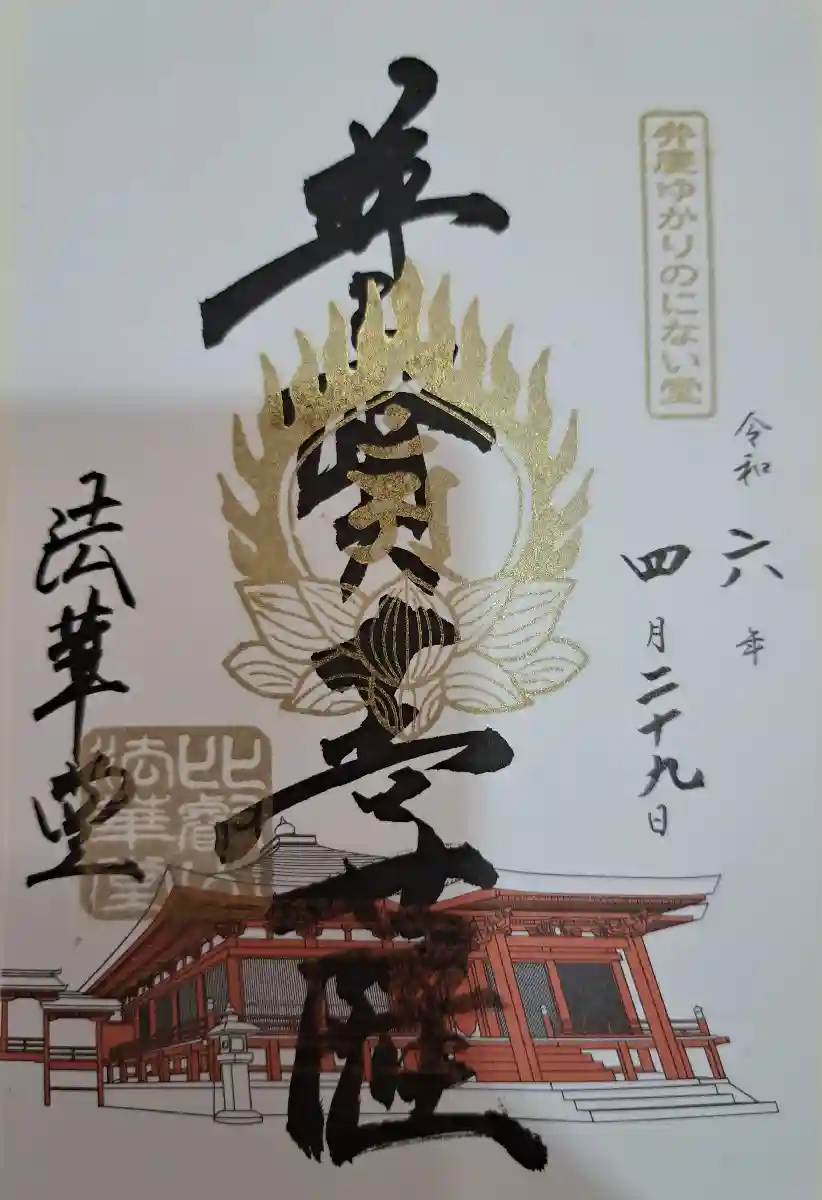 弁慶ゆかりのにない堂
令和六年
四月二十九日
普賢菩薩
法華堂
比叡山
法華堂